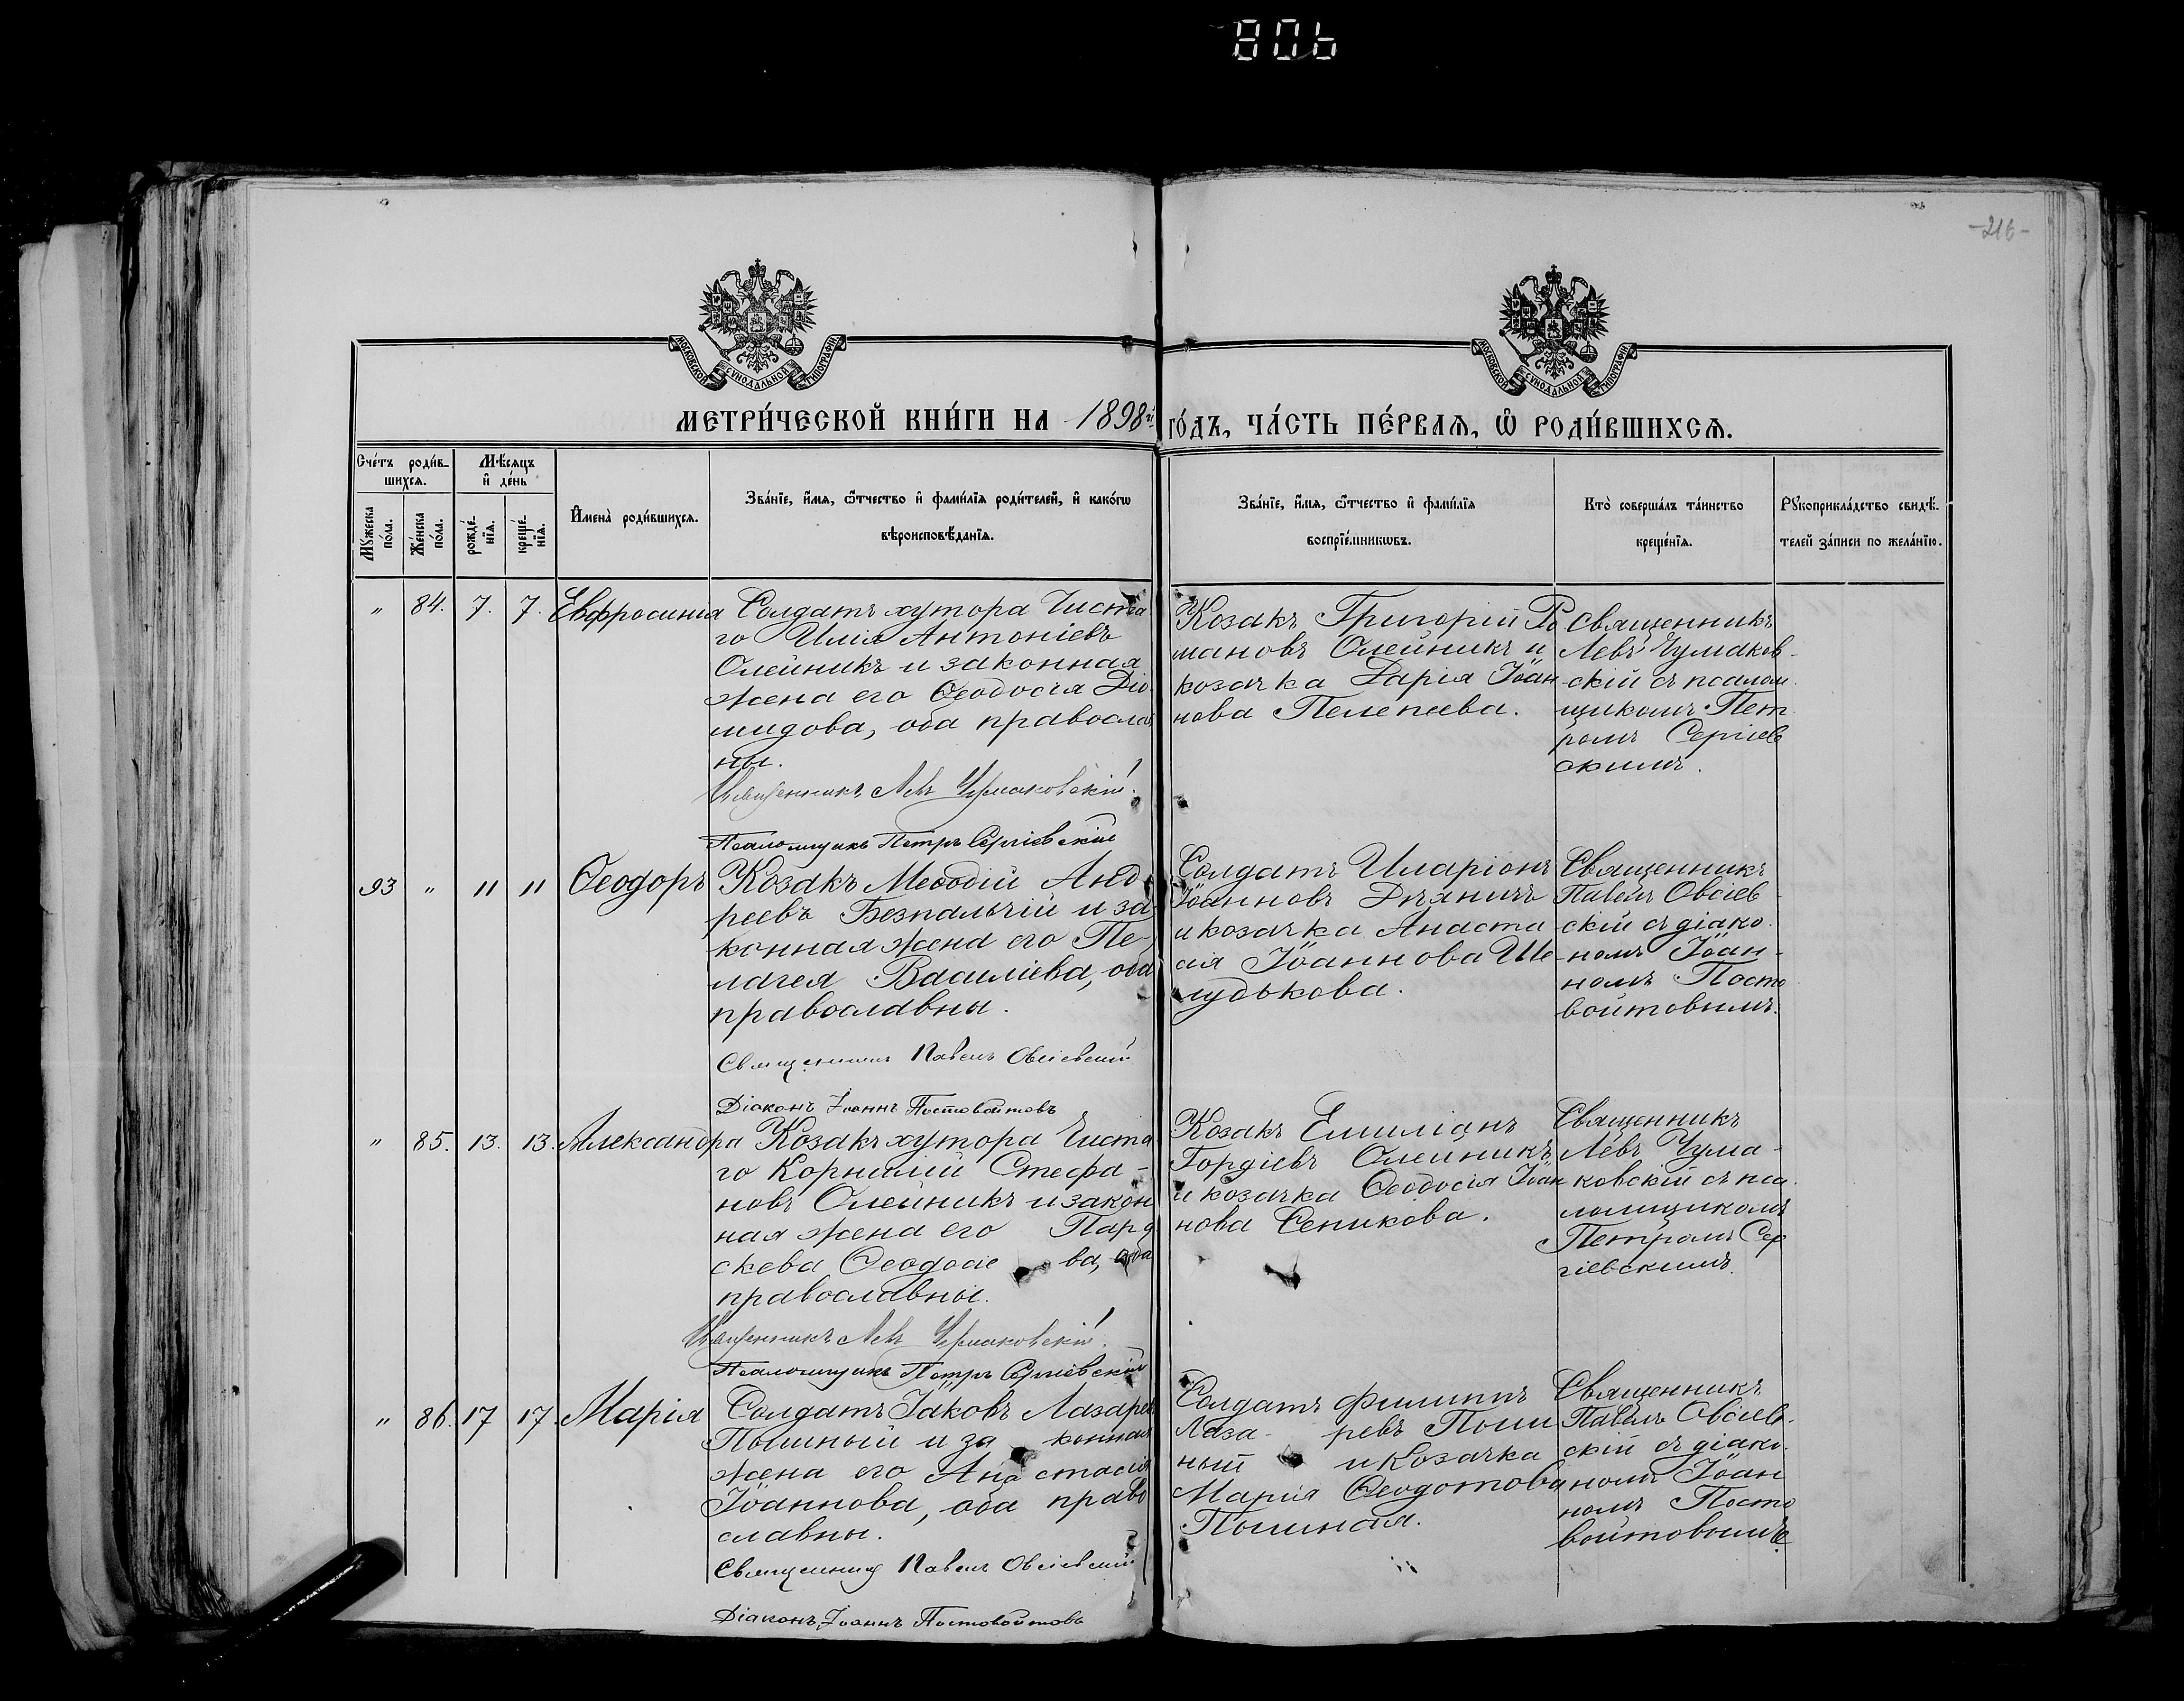 806
-216-
МОСКОВСКОЙ СѴНОДАЛЬНОЙ ТИПОГРАФІИ
МОСКОВСКОЙ СѴНОДАЛЬНОЙ ТИПОГРАФІИ
МЕТРИ́ЧЕСКОЙ КНИ́ГИ НА 1898й ГО́ДЪ, ЧА́СТЬ ПЕ́РВАѦ, Ѡ҆ РОДИ́ВШИХСѦ.
Сче́тъ роди́в-
шихсѧ.
Мꙋ́жеска по́ла.
Же́нска по́ла.
Мѣ́сѧцъ
и҆ де́нь
рожде́-
нїѧ.
креще́-
нїѧ.
И҆мена̀ роди́вшихсѧ.
Зва́нїе, и҆́мѧ, ѻ҆́тчество и҆ фами́лїѧ роди́телей, и҆ како́гѡ
вѣроисповѣ́данїѧ.
Зва́нїе, и҆́мѧ, ѻ҆́тчество и҆ фами́лїѧ
воспрїе́мникѡвъ.
Кто̀ соверша́лъ та́инство
креще́нїѧ.
Рꙋкоприкла́дство свидѣ́-
телей за́писи по жела́нїю.
" 84. 7. 7. Евфросинія
Солдатъ хутора Чиста
го Илія Антоніевъ
Олейникъ и законная
жена его Ѳеодосія Діо
мидова, оба православ
ны.
Священникъ Левъ Чумаковскій.
Псаломщикъ Петръ Сергіевскій
Козакъ Григорій Ро
мановъ Олейникъ и
козачка Дарія Іоан
нова Пелепеева.
Священникъ
Левъ Чумаков-
скій съ псалом
щикомъ Пет
ромъ Сергіев
скимъ.
93 " 11 11 Ѳеодоръ
Козакъ Меѳодій Анд
реевъ Безпальчій и за
конная жена его Пе-
лагея Василіева, оба
православны.
Священникъ Павелъ Овсіевскій
Діаконъ Іоаннъ Постовойтовъ
Солдатъ Иларіонъ
Іоанновъ
и козачка Анаста
сія Іоаннова Ше
лудькова.
Священникъ
Павелъ Овсіев-
скій съ діако-
номъ Іоан-
номъ Посто
войтовымъ.
" 85. 13. 13. Александра
Козакъ хутора Чиста
го Корнилій Стефа-
новъ Олейникъ и закон
ная жена его Пара
скева Ѳеодосіева, оба
православны.
Священникъ Левъ Чумаковскій.
Псаломщикъ Петръ Сергіевскій
Козакъ Емиліанъ
Гордіевъ Олейникъ
и козачка Ѳеодосія Іоан
нова Сеникова.
Священникъ
Левъ Чума-
ковскій съ пса
ломщикомъ
Петромъ Сер
гіевскимъ.
" 86. 17 17. Марія
Солдатъ Іаковъ Лазарев
Пышный и законная
жена его Анастасія
Іоаннова, оба право
славны.
Священникъ Павелъ Овсіевскій
Діаконъ Іоаннъ Постовойтовъ
Солдатъ Филиппъ
Лазаревъ Пыш
ный и козачка
Марія Ѳеодотова
Пышная.
Священникъ
Павелъ Овсіев-
скій съ діако-
номъ Іоан
номъ Посто
войтовымъ.